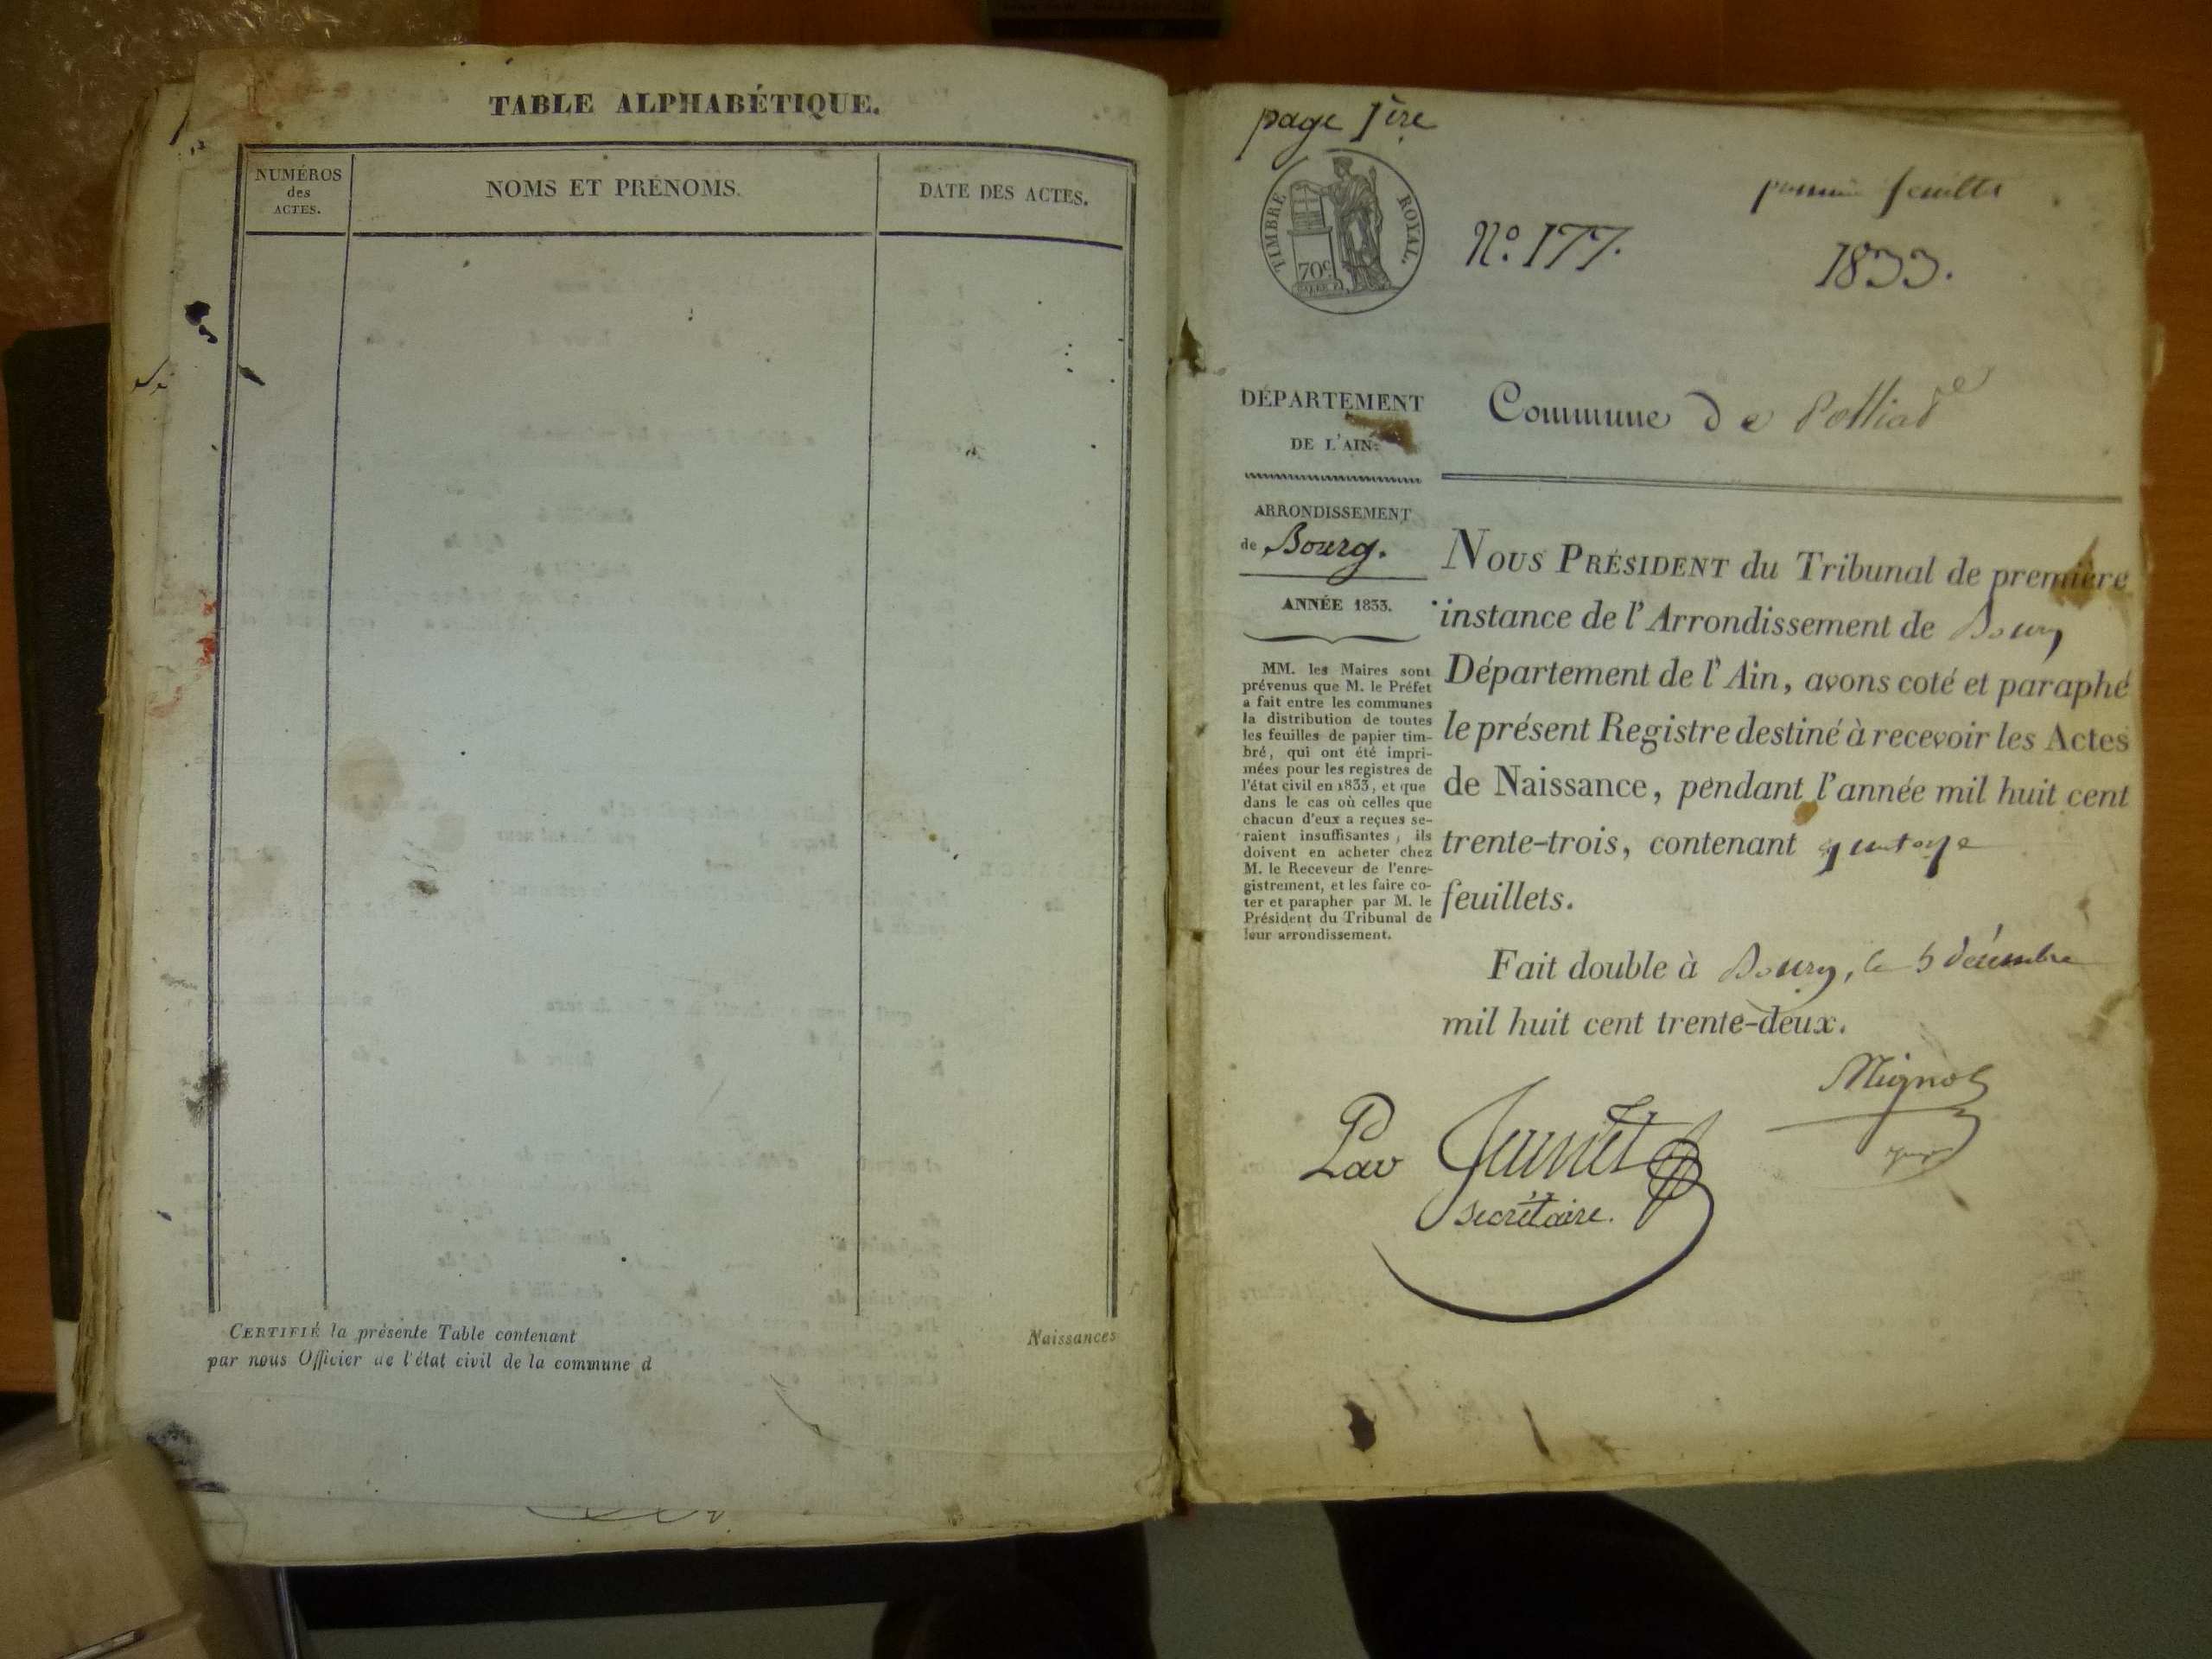 TABLE ALPHABÉTIQUE.
NUMÉROS
des
ACTES.
NOMS ET PRÉNOMS.
DATE DES ACTES.
CERTIFIÉ la présente Table contenant
par nous Officier de l'état civil de la commune d
Naissances
page 1ère
TIMBRE ROYAL.
70c
feuillet
N.º 177.
1833.
DÉPARTEMENT
DE L'AIN.
Commune de Polliat
ARRONDISSEMENT
de Bourg.
ANNÉE 1833.
MM. les Maires sont
prévenus que M. le Préfet
a fait entre les communes
la distribution de toutes
les feuilles de papier tim-
bré, qui ont été impri-
mées pour les registres de
l'état civil en 1833, et que
dans le cas où celles que
chacun d'eux a reçues se-
raient insuffisantes, ils
doivent en acheter chez
M. le Receveur de l'enre-
gistrement, et les faire co-
ter et parapher par M. le
Président du Tribunal de
leur arrondissement.
NOUS PRÉSIDENT du Tribunal de première
instance de l'Arrondissement de Bourg
Département de l'Ain, avons coté et paraphé
le présent Registre destiné à recevoir les Actes
de Naissance, pendant l'année mil huit cent
trente-trois, contenant
feuillets.
Fait double à Bourg, le 5 décembre
mil huit cent trente-deux.
Mignot
Par
secrétaire.